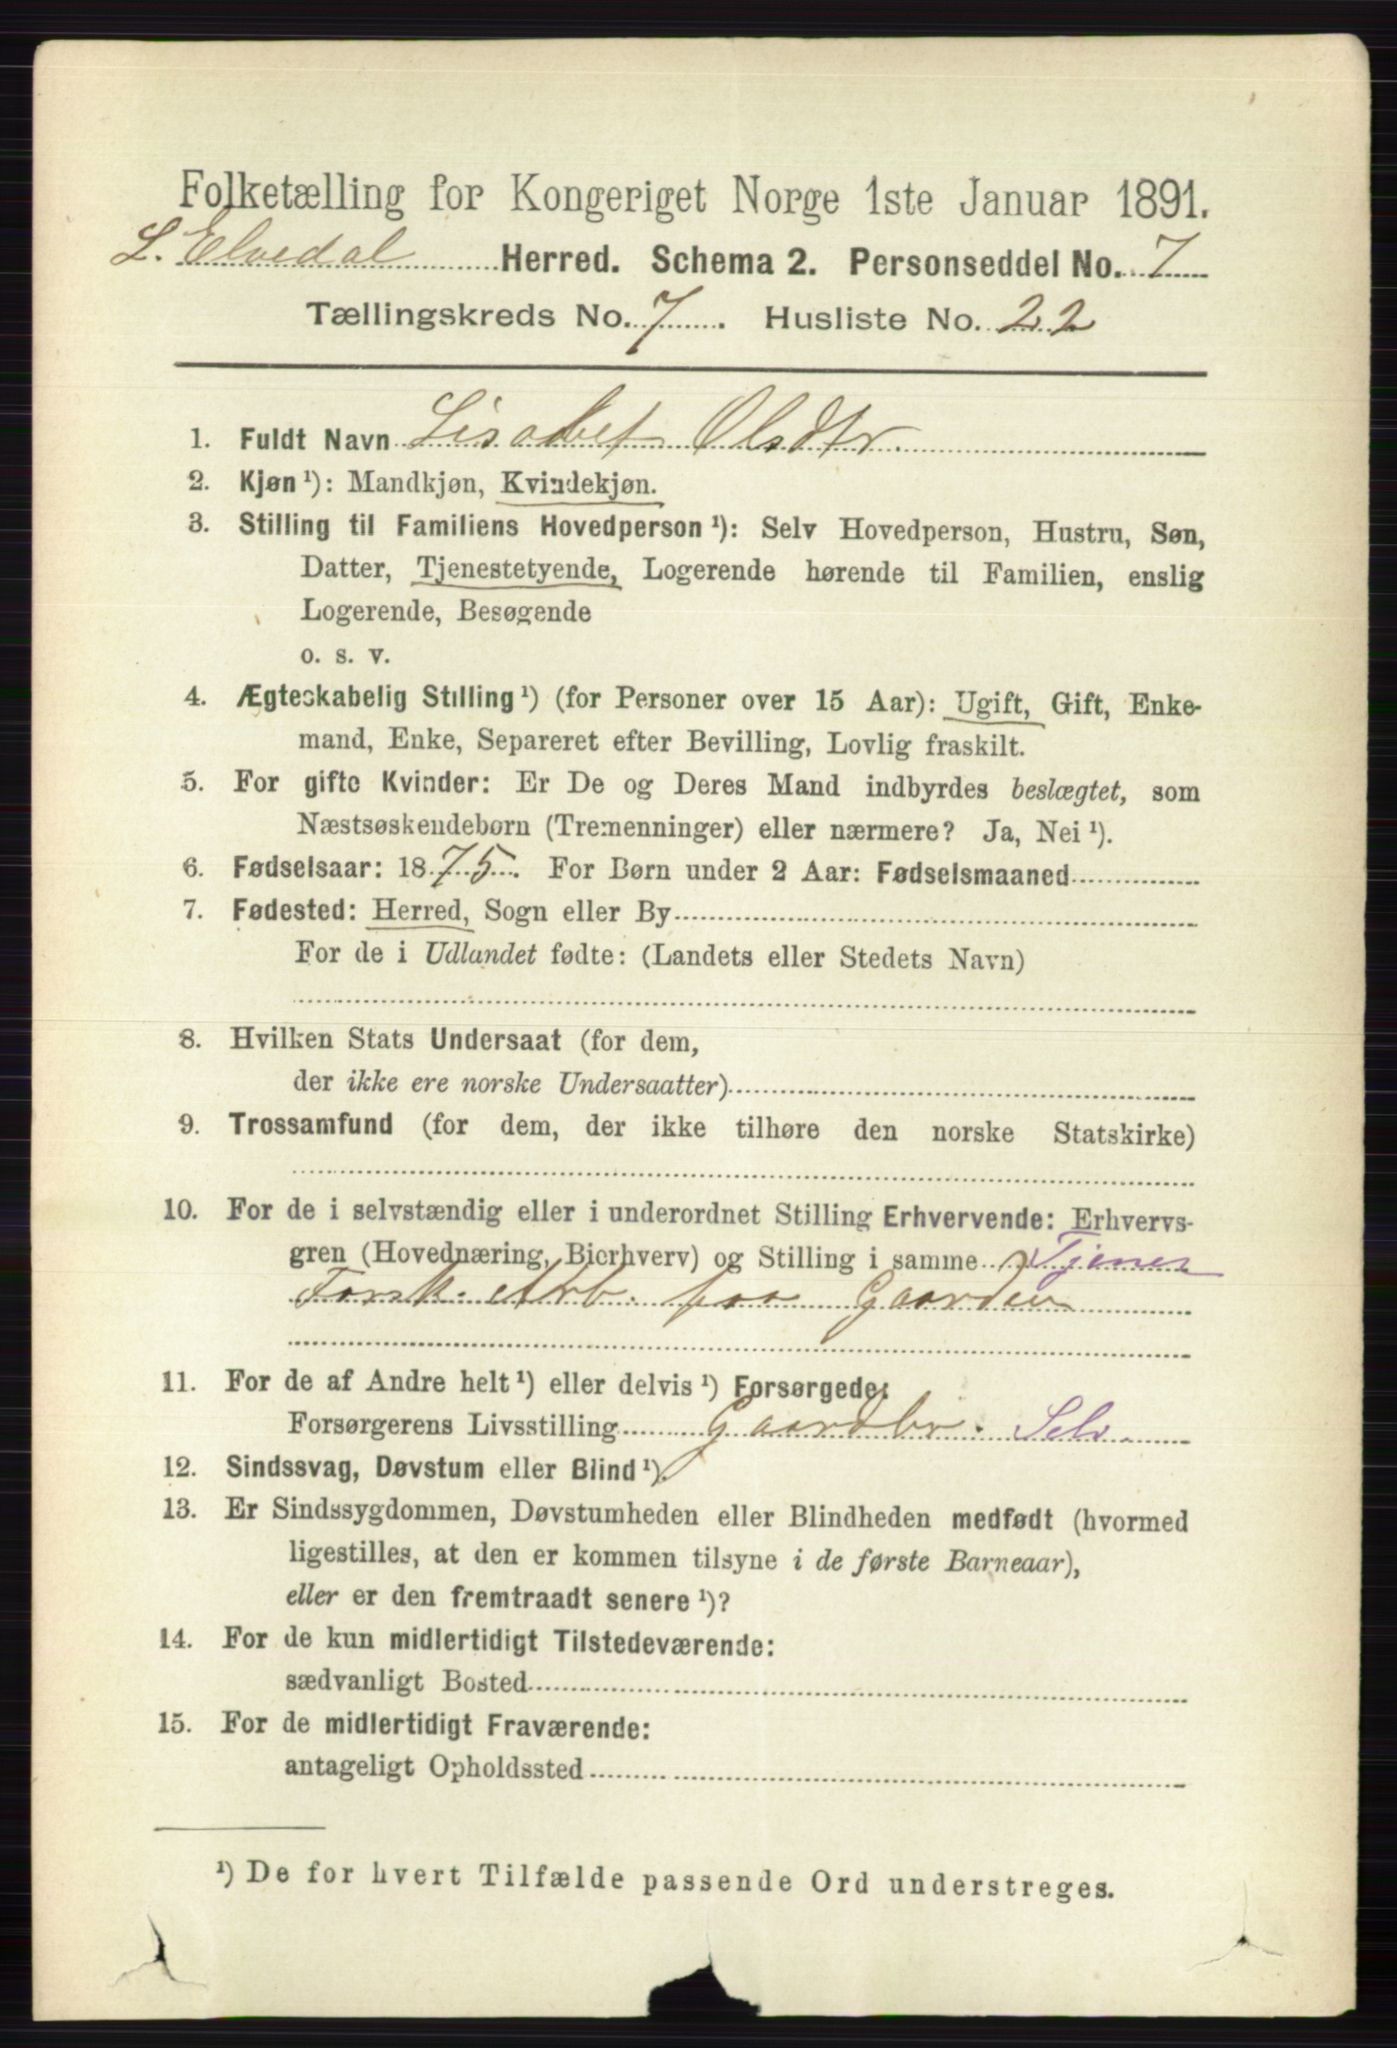 Folketælling for Kongeriget Norge 1ste Januar 1891.
L. Elvedal Herred. Schema 2. Personseddel No. 7
Tællingskreds No. 7. Husliste No. 22
1. Fuldt Navn Lisabet Olsdtr.
2. Kjøn ¹): Mandkjøn, Kvindekjøn.
3. Stilling til Familiens Hovedperson ¹): Selv Hovedperson, Hustru, Søn,
Datter, Tjenestetyende, Logerende hørende til Familien, enslig
Logerende, Besøgende
o. s. v.
4. Ægteskabelig Stilling ¹) (for Personer over 15 Aar): Ugift, Gift, Enke-
mand, Enke, Separeret efter Bevilling, Lovlig fraskilt.
5. For gifte Kvinder: Er De og Deres Mand indbyrdes beslægtet, som
Næstsøskendebørn (Tremenninger) eller nærmere? Ja, Nei ¹).
6. Fødselsaar: 1875. For Børn under 2 Aar: Fødselsmaaned
7. Fødested: Herred, Sogn eller By
For de i Udlandet fødte: (Landets eller Stedets Navn)
8. Hvilken Stats Undersaat (for dem,
der ikke ere norske Undersaatter)
9. Trossamfund (for dem, der ikke tilhøre den norske Statskirke)
10. For de i selvstændig eller i underordnet Stilling Erhvervende: Erhvervs-
gren (Hovednæring, Bierhverv) og Stilling i samme Tjener
Forsk. Arb. paa Gaarden
11. For de af Andre helt ¹) eller delvis ¹) Forsørgede:
Forsørgerens Livsstilling Gaardbr. Selv.
12. Sindssvag, Døvstum eller Blind ¹).
13. Er Sindssygdommen, Døvstumheden eller Blindheden medfødt (hvormed
ligestilles, at den er kommen tilsyne i de første Barneaar),
eller er den fremtraadt senere ¹)?
14. For de kun midlertidigt Tilstedeværende:
sædvanligt Bosted
15. For de midlertidigt Fraværende:
antageligt Opholdssted
¹) De for hvert Tilfælde passende Ord understreges.